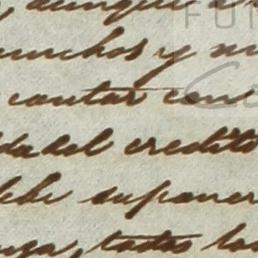 aunque a
muchos y m
contar con
dadel credito
debe suponer
nga, todos los